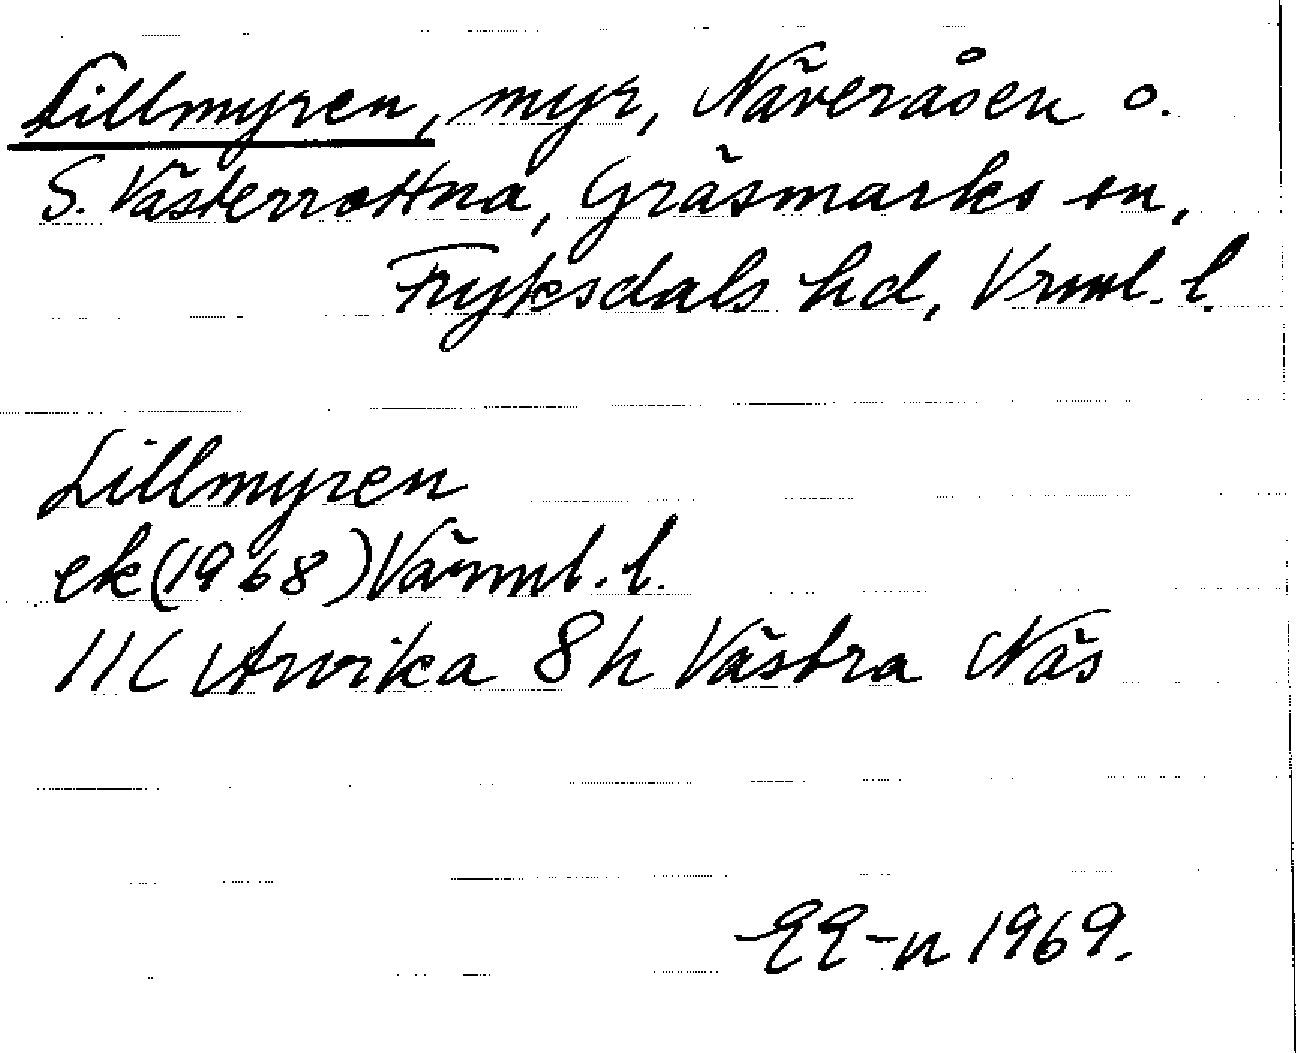 Lillmyren, myr, Näveråsen o.
S. Västerrottna, Gräsmarks sn,
Fryksdals hd, Vrml. l.
Lillmyren
ek (1968) Värml. l.
11C Arvika 8h Västra Näs
EE-n 1969.